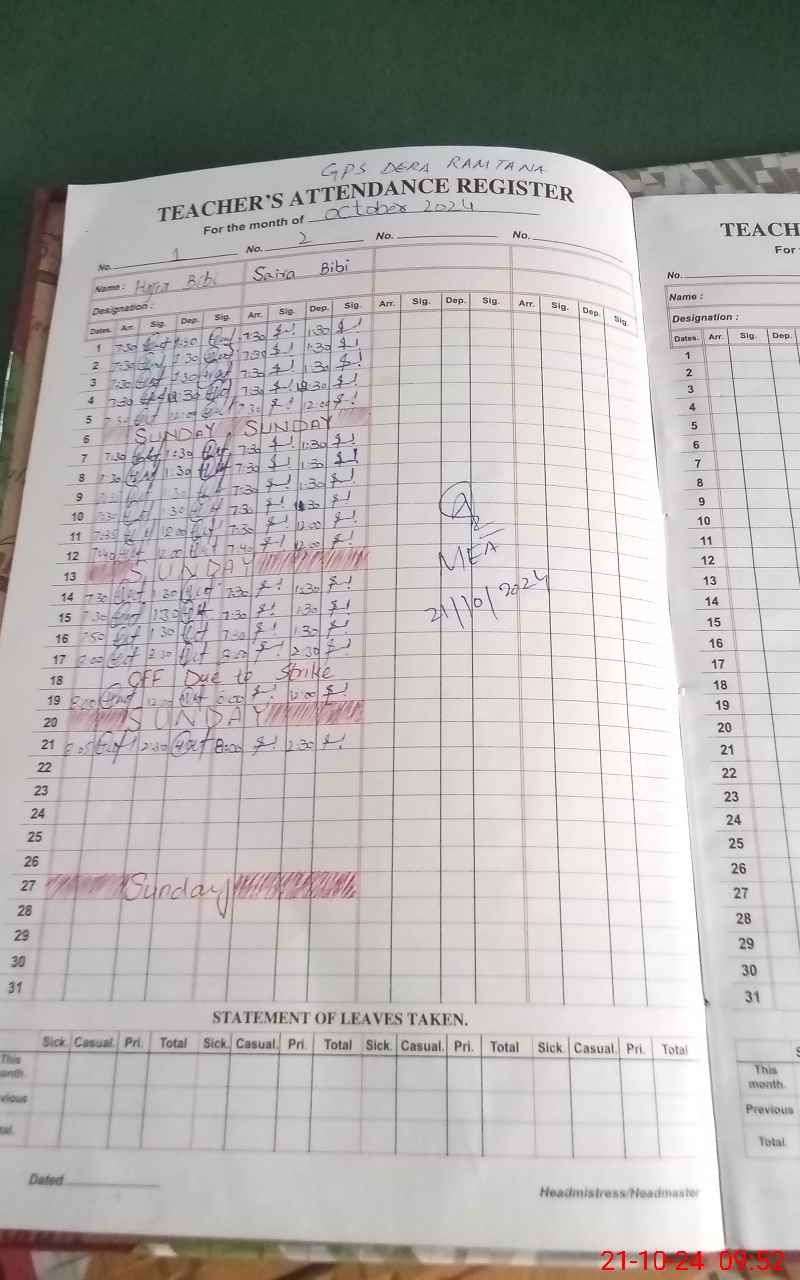 GPS DERA RAMTANA
TEACHER'S ATTENDANCE REGISTER
For the month of October 2024
No. 1 No. 2 No. No.
Name : Bibi Saira Bibi
Designation :
Dates. Arr. Sig. Dep. Sig. Arr. Sig. Dep. Sig. Arr. Sig. Dep. Sig. Arr. Sig. Dep. Sig.
1 7:30 1:30 7:30 1:30
2 7:30 1:30 7:30 1:30
3 7:30 1:30 7:30 1:30
4 7:30 7:30
5 7:30 12:00 7:30 12:00
6 SUNDAY, SUNDAY
7 7:30 1:30 7:30 1:30
8 7:30 1:30 7:30 1:30
9 7:30 1:30 7:30 1:30
10 7:30 1:30 7:30
11 7:35 12:00 7:30 12:00
12 7:40 12:00 7:40 12:00
13 SUNDAY
14 7:30 1:30 7:30 1:30
15 7:30 1:30 7:30 1:30
16 1:30 7:50 1:30
17 8:00 2:30 8:00 2:30
18 OFF Due to Strike
19 8:00 12:00 8:00 12:00
20 SUNDAY
21 8:05 2:30 8:00 2:30
22
23
24
25
26
27 Sunday
28
29
30
31
MEA
21/10/2024
STATEMENT OF LEAVES TAKEN.
Sick. Casual. Pri. Total Sick. Casual. Pri. Total Sick. Casual. Pri. Total Sick Casual. Pri. Total
This
onth.
vious
tal.
Dated
Headmistress/Headmaster
TEACH
For
No.
Name :
Designation :
Dates. Arr. Sig. Dep.
1
2
3
4
5
6
7
8
9
10
11
12
13
14
15
16
17
18
19
20
21
22
23
24
25
26
27
28
29
30
31
S
This
month.
Previous
Total
21-10-24 09:52